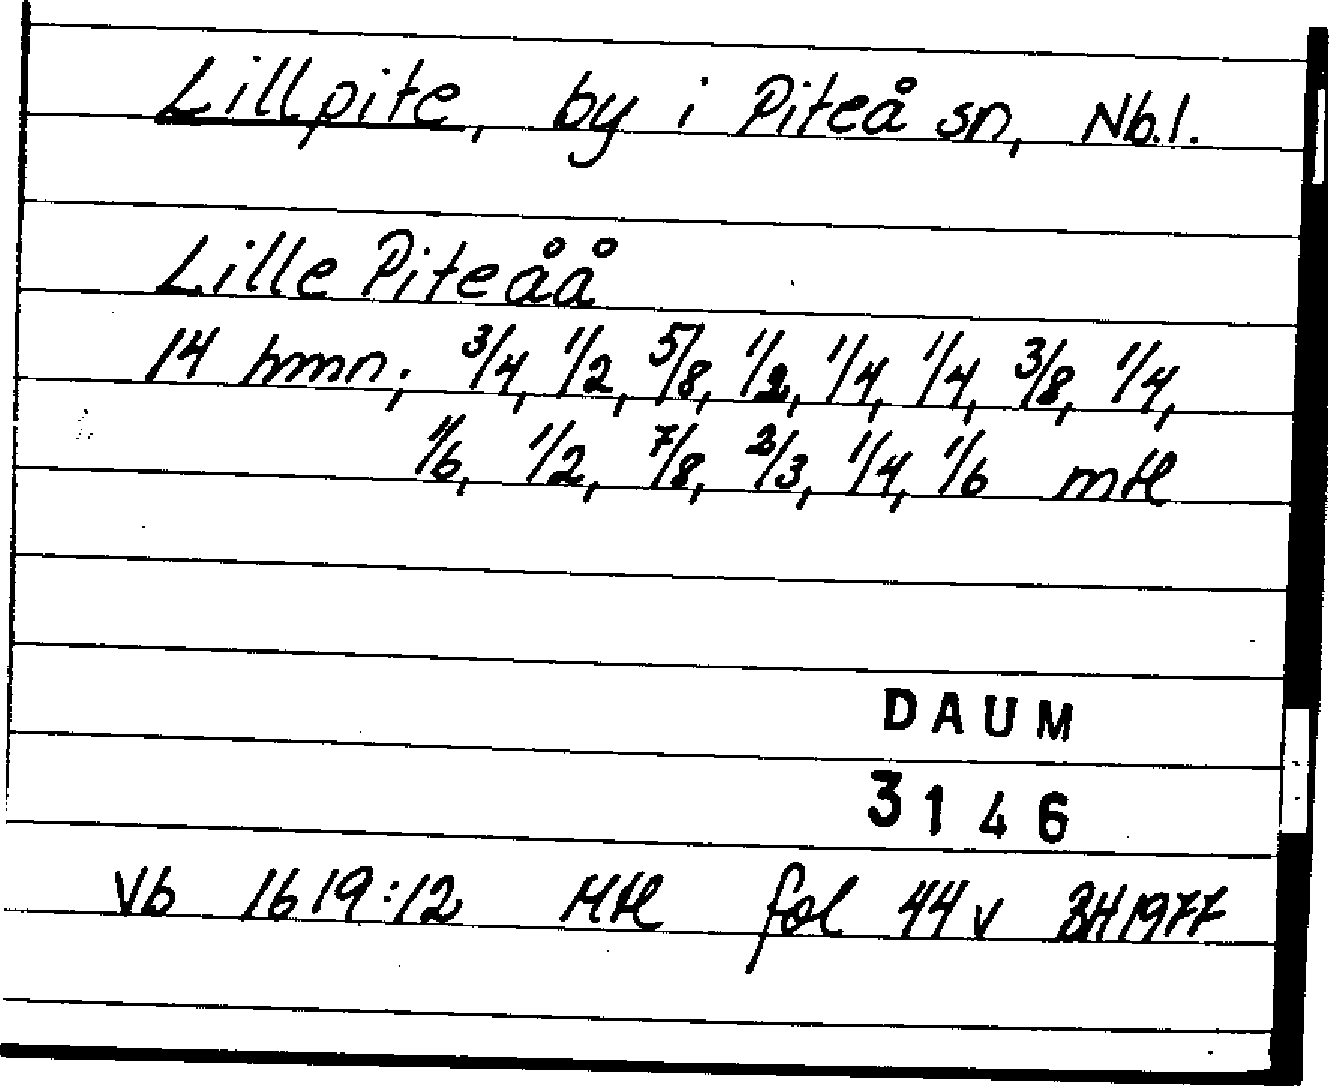 Lillpite, by i Piteå sn, Nb.l.
Lille Piteåå
14 hmn; 3/4, 1/2, 5/8, 1/2, 1/4, 1/4, 3/8, 1/4,
1/6, 1/2, 7/8, 2/3, 1/4, 1/6 mtl
DAUM
3146
Vb 1619:12 Mtl fol 44v BH1977